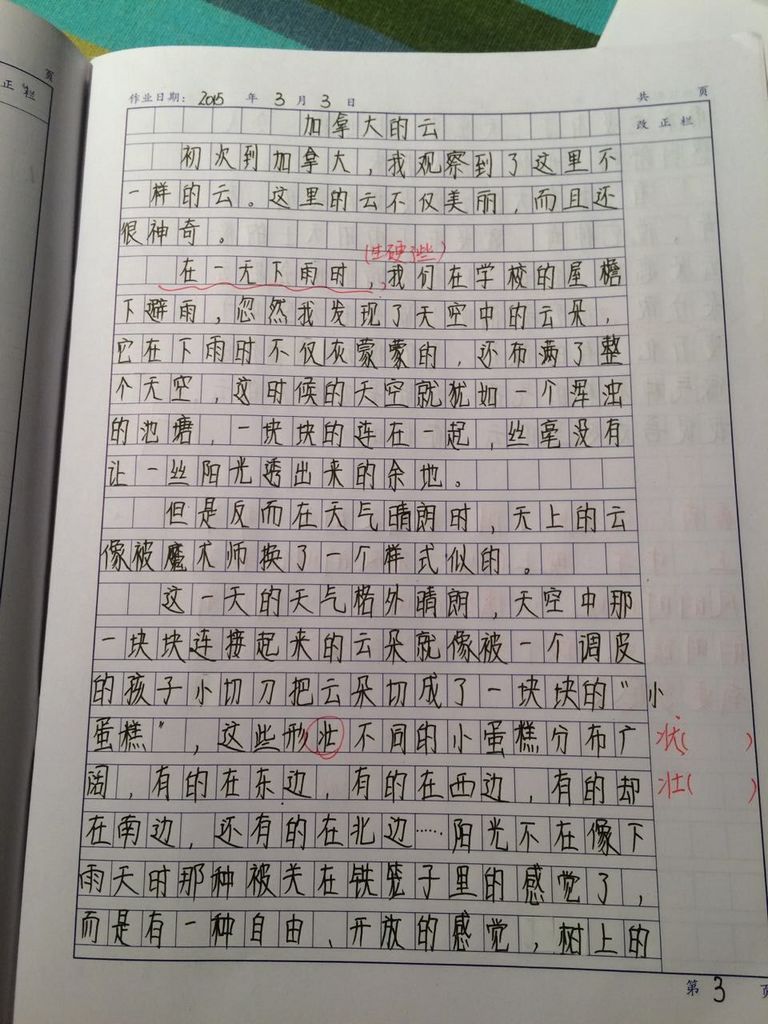 页
正栏
作业日期: 2015 年 3 月 3 日 共 页
加拿大的云 改正栏
初次到加拿大,我观察到了这里不
一样的云。这里的云不仅美丽,而且还
很神奇。
(生硬些)
在一天下雨时,我们在学校的屋檐
下避雨,忽然我发现了天空中的云朵,
它在下雨时不仅灰蒙蒙的,还布满了整
个天空,这时候的天空就犹如一个浑浊
的池塘,一块块的连在一起,丝毫没有
让一丝阳光透出来的余地。
但是反而在天气晴朗时,天上的云
像被魔术师换了一个样式似的。
这一天的天气格外晴朗,天空中那
一块块连接起来的云朵就像被一个调皮
的孩子小切刀把云朵切成了一块块的"小
蛋糕",这些形壮不同的小蛋糕分布广 状( )
阔,有的在东边,有的在西边,有的却 壮( )
在南边,还有的在北边……阳光不在像下
雨天时那种被关在铁笼子里的感觉了,
而是有一种自由、开放的感觉,树上的
第 3 页